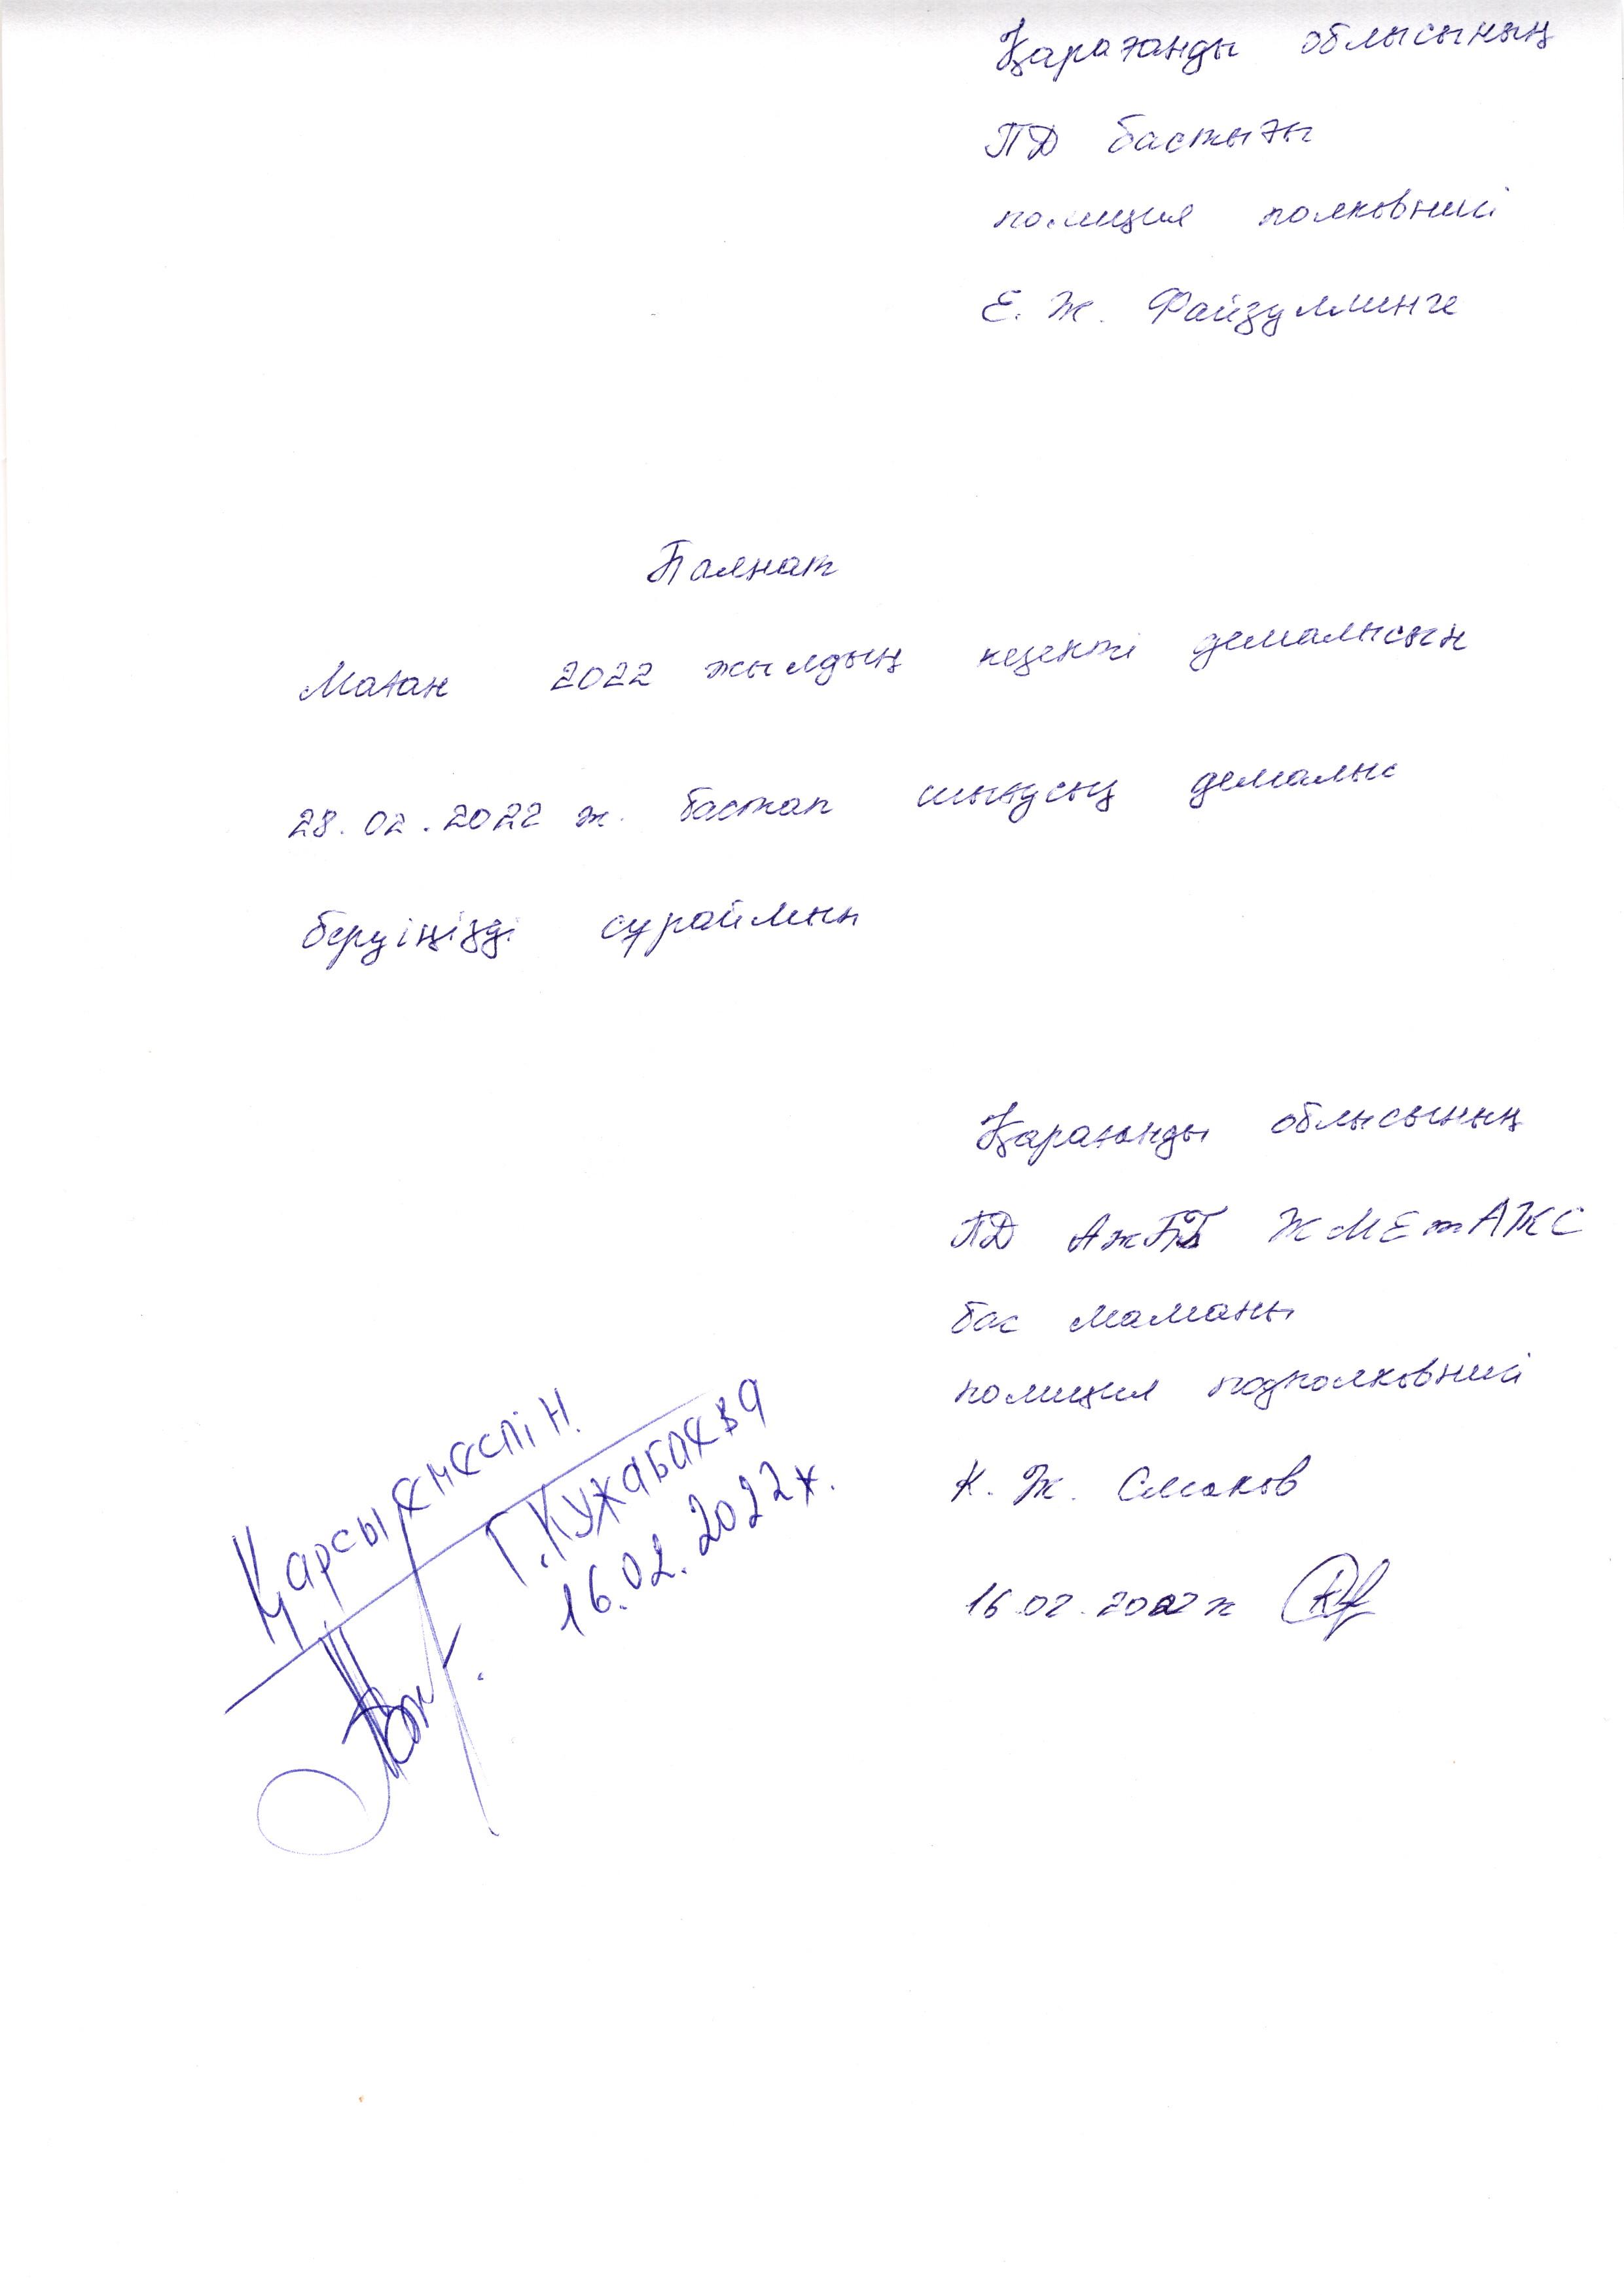 Қарағанды облысының
ПД бастығы
полиция полковнигі
Е. Ж. Файзуллинге
Баянат
Маған 2022 жылдың кезекті демалысын
28.02.2022 ж. бастап шығусың демалыс
беруіңізді сұраймын
Қарағанды облысының
ПД АжББ ЖМЕжАЖС
бас маманы
полиция подполковнигі
К. Ж. Смаков
16.02.2022 ж
Қарсы емеспін.
Г. Кужабаева
16.02.2022 ж.